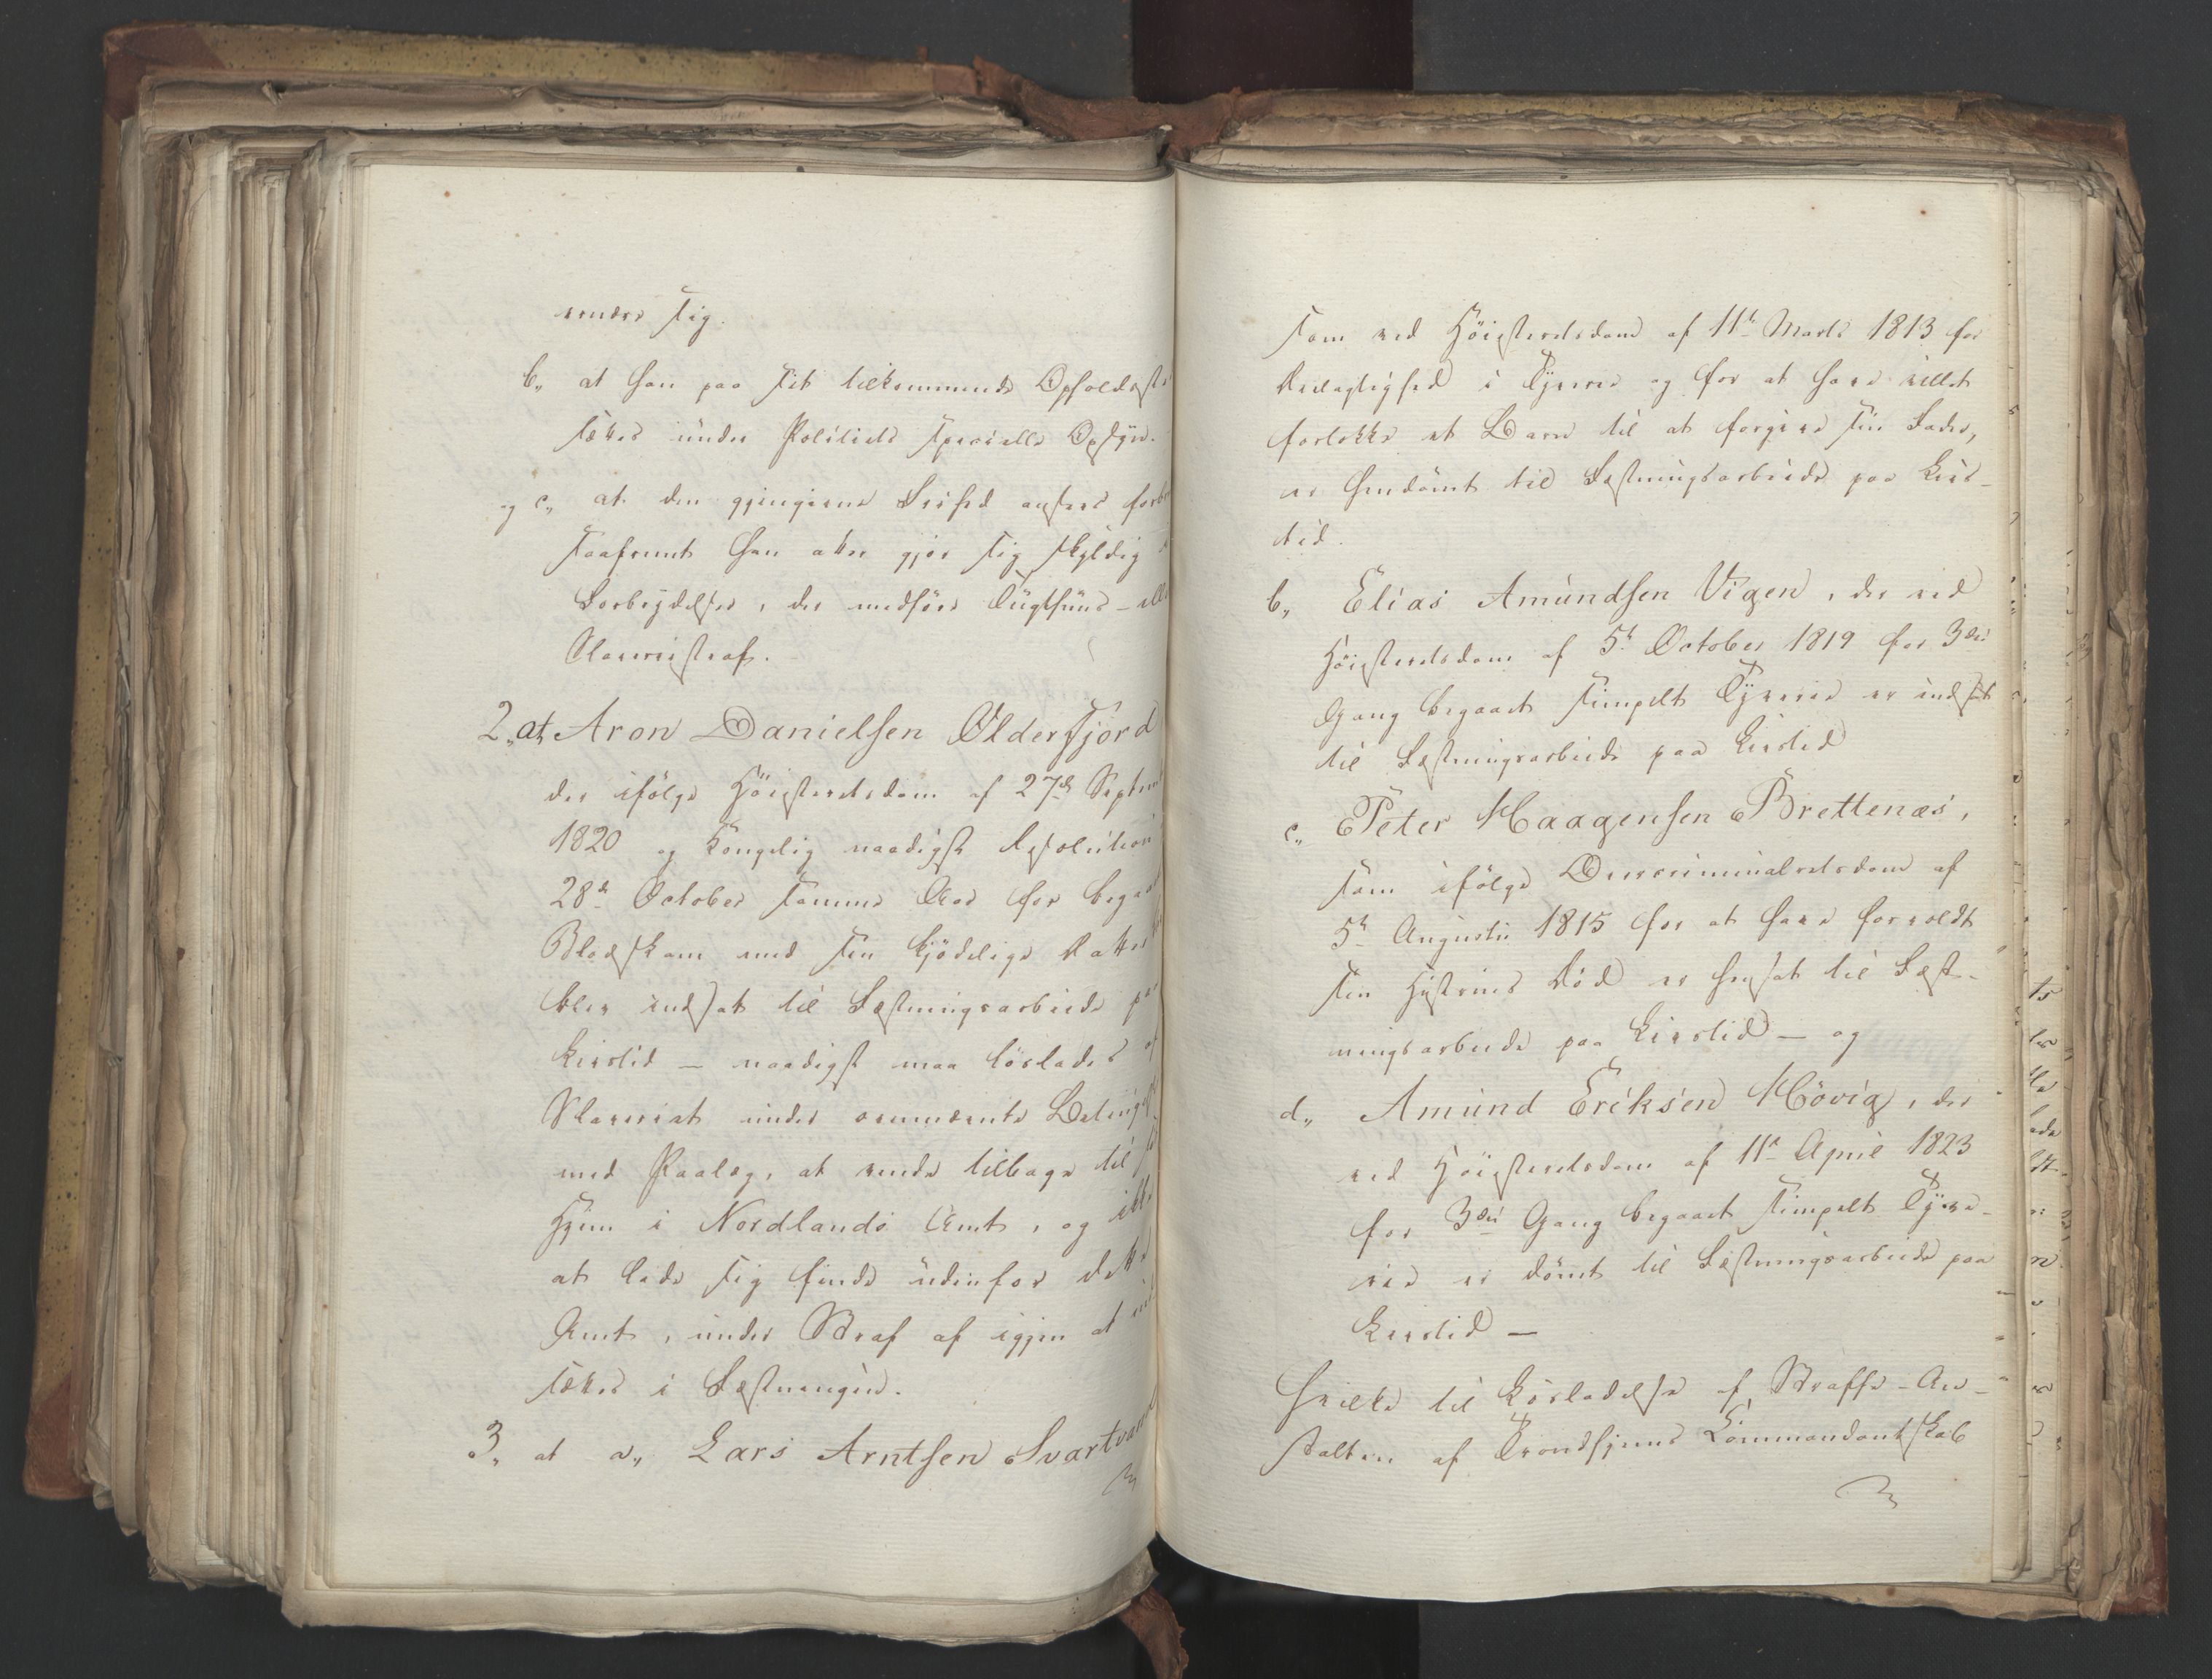 ernære sig.
b,, at han paa sit tilkommende Opholdsste
sættes under Politiets specielle Opsyn.
og c,, at den gjengivne Frihed ansees forbr
saafremt han atter gjør sig skyldig
Forbrydelser, der medføre Tugthuus- elle
Slaveriestraf.
2,, at Aron Danielsen Olderfjord
der ifølge Høiesteretsdom af 27de Septem
1820 og Kongelig naadigst Resolution
28de October samme Aar for begaa
Blodskam med sin kjødelige Datter
blev indsat til Fæstningsarbeide paa
Livstid – naadigst maa løslades af
Slaveriet under ovennævnte Betingels
med Paalæg, at vende tilbage til sit
Hjem i Nordlands Amt, og ikke
at lade sig finde udenfor dette
Amt, under Straf af igjen at ind
sættes i Fæstningen.
3,, at a,, Lars Arntsen Svartvand
som ved Høiesteretsdom af 11te Marts 1813 for
Deelagtighed i Tyverie og for at have villet
forlokke et Barn til at forgive sin Fader,
er hendømt til Fæstningsarbeide paa Livs-
tid.
b,, Elias Amundsen Vigen, der ved
Høiesteretsdom af 5te October 1819 for 3die
Gang begaaet simpelt Tyverie er indsat
til Fæstningsarbeide paa Livstid
c,, Peter Haagensen Brettenæs,
som ifølge Overcriminalretsdom af
5te Augusti 1815 for at have forvoldt
sin Hustrues Død er hensat til Fæst-
ningsarbeide paa Livstid – og
d,, Amund Eriksen Høvig, der
ved Høiesteretsdom af 11te April 1823
for 3die Gang begaaet simpelt Tyve-
rie er dømt til Fæstningsarbeide paa
Livstid –
hvilke til Løsladelse af Straffe-An-
stalten af Trondhjems Kommandantskab